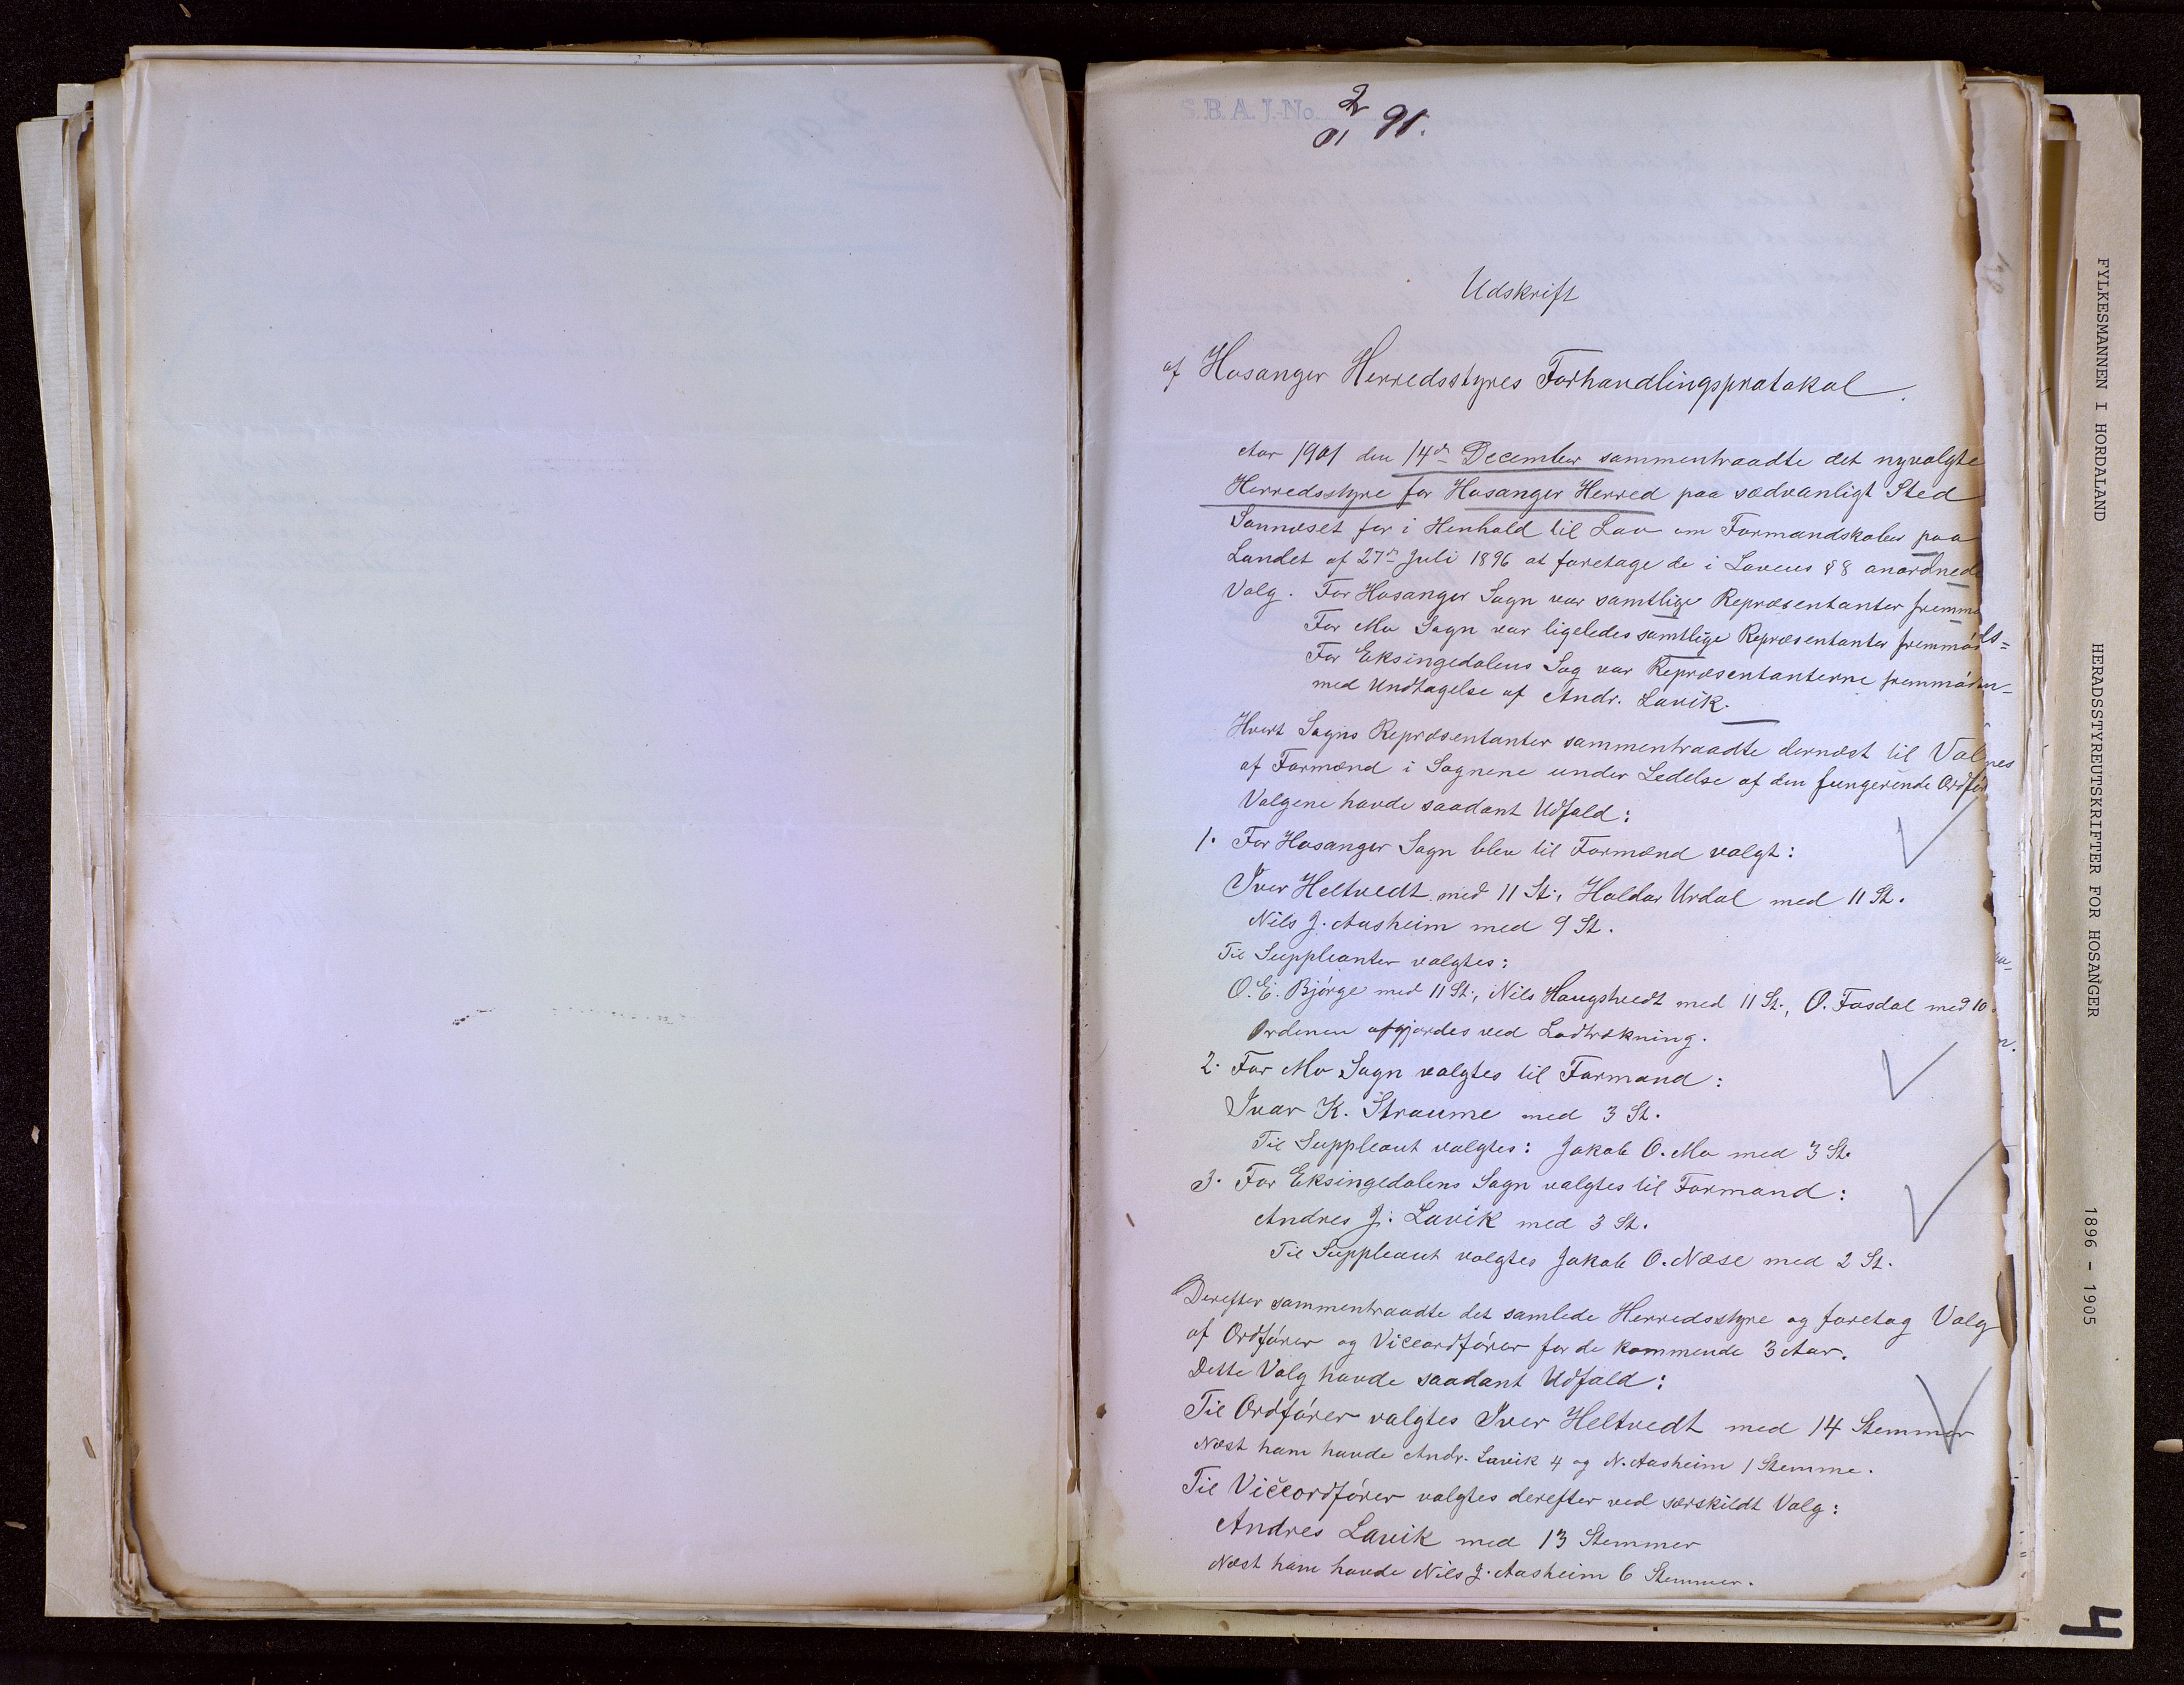 S.B.A. J.-No. 2/01 91.
Udskrift
af Hosanger Herredsstyres Forhandlingsprotokol.
Aar 1901 den 14de December sammentraadte det nyvalgte
Herredsstyre for Hosanger Herred paa sædvanligt Sted
Sonnæset for i Henhold til Lov om Formandskaber paa
Landet af 27de Juli 1896 at foretage de i Lovens § 8 anordnede
Valg. For Hosanger Sogn var samtlige Repræsentanter
For Mo Sogn var ligeledes samtlige Repræsentanter
For Eksingedalens Sog var Repræsentanterne
med Undtagelse af Andr. Lavik.
Hvert Sogns Repræsentanter sammentraadte dernæst til
af Formænd i Sognene under Ledelse af den fungerende
Valgene havde saadant Udfald:
1. For Hosanger Sogn blev til Formænd valgt:
Iver Heltvedt med 11 St., Haldor Urdal med 11 St.
Nils J. Aasheim med 9 St.
Til Suppleanter valgtes:
O. E. Bjørge med 11 St., Nils Haugstvedt med 11 St., O. Fosdal med 10
Ordenen afgjordes ved Lodtrækning.
2. For Mo Sogn valgtes til Formand:
Ivar K. Straume med 3 St.
Til Suppleant valgtes: Jakob O. Mo med 3 St.
3. For Eksingedalens Sogn valgtes til Formand:
Andres J. Lavik med 3 St.
Til Suppleant valgtes Jakob O. Næse med 2 St.
Derefter sammentraadte det samlede Herredsstyre og foretog Valg
af Ordfører og Viceordfører for de kommende 3 Aar.
Dette Valg havde saadant Udfald:
Til Ordfører valgtes Iver Heltvedt med 14 Stemmer
Næst ham havde Andr. Lavik 4 og N. Aasheim 1 Stemme.
Til Viceordfører valgtes derefter ved særskildt Valg:
Andres Lavik med 13 Stemmer
Næst ham havde Nils J. Aasheim 6 Stemmer.
FYLKESMANNEN I HORDALAND HERADSSTYREUTSKRIFTER FOR HOSANGER 1896 - 1905
4